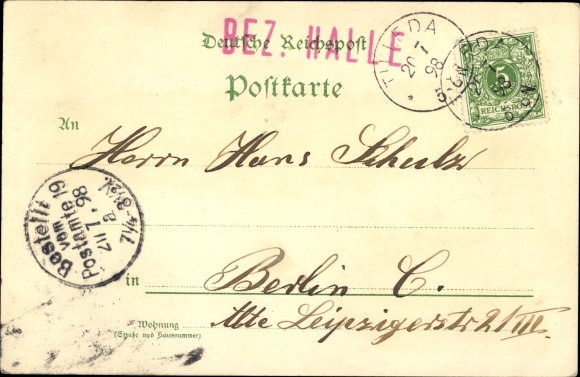 BEZ. HALLE
Deutsche Reichspost
Postkarte
TILLEDA
20 7
98
*
5
REICHSPOST
An
Herrn Hans Schulz
Bestellt
vom
Postamte 19
98
7¼-8½V.
in
Berlin C.
Alte Leipzigerstr 21 III
Wohnung
(Straße und Hausnummer)